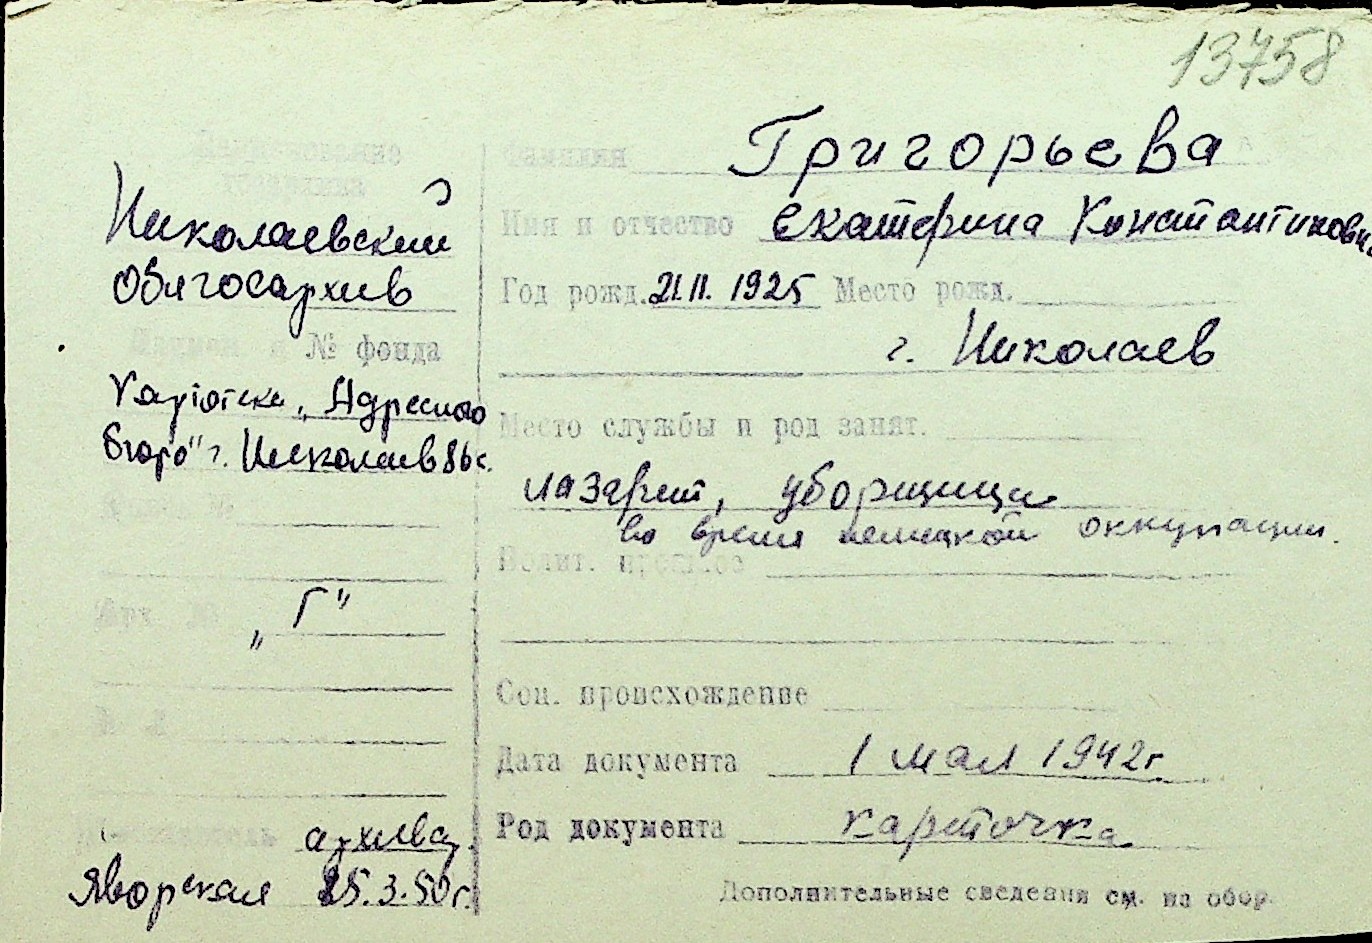 13758
Наименование
Фамилия Григорьева
Николаевский
Имя и отчество Екатерина Константинович
Облгосархив
Год рожд. 21.11. 1925 Место рожд.
г. Николаев
№ фонда
Картотека „Адресного
бюро" г. Николаев
Место службы и род занят.
лазарет, уборщица
во время немецкой оккупации.
Полит. прошлое
Арх. №
„Г"
Соц. происхождение
Дата документа 1 мая 1942г.
архива
Род документа карточка
Яворская 25.3.50г.
Дополнительные сведения см. на обор.